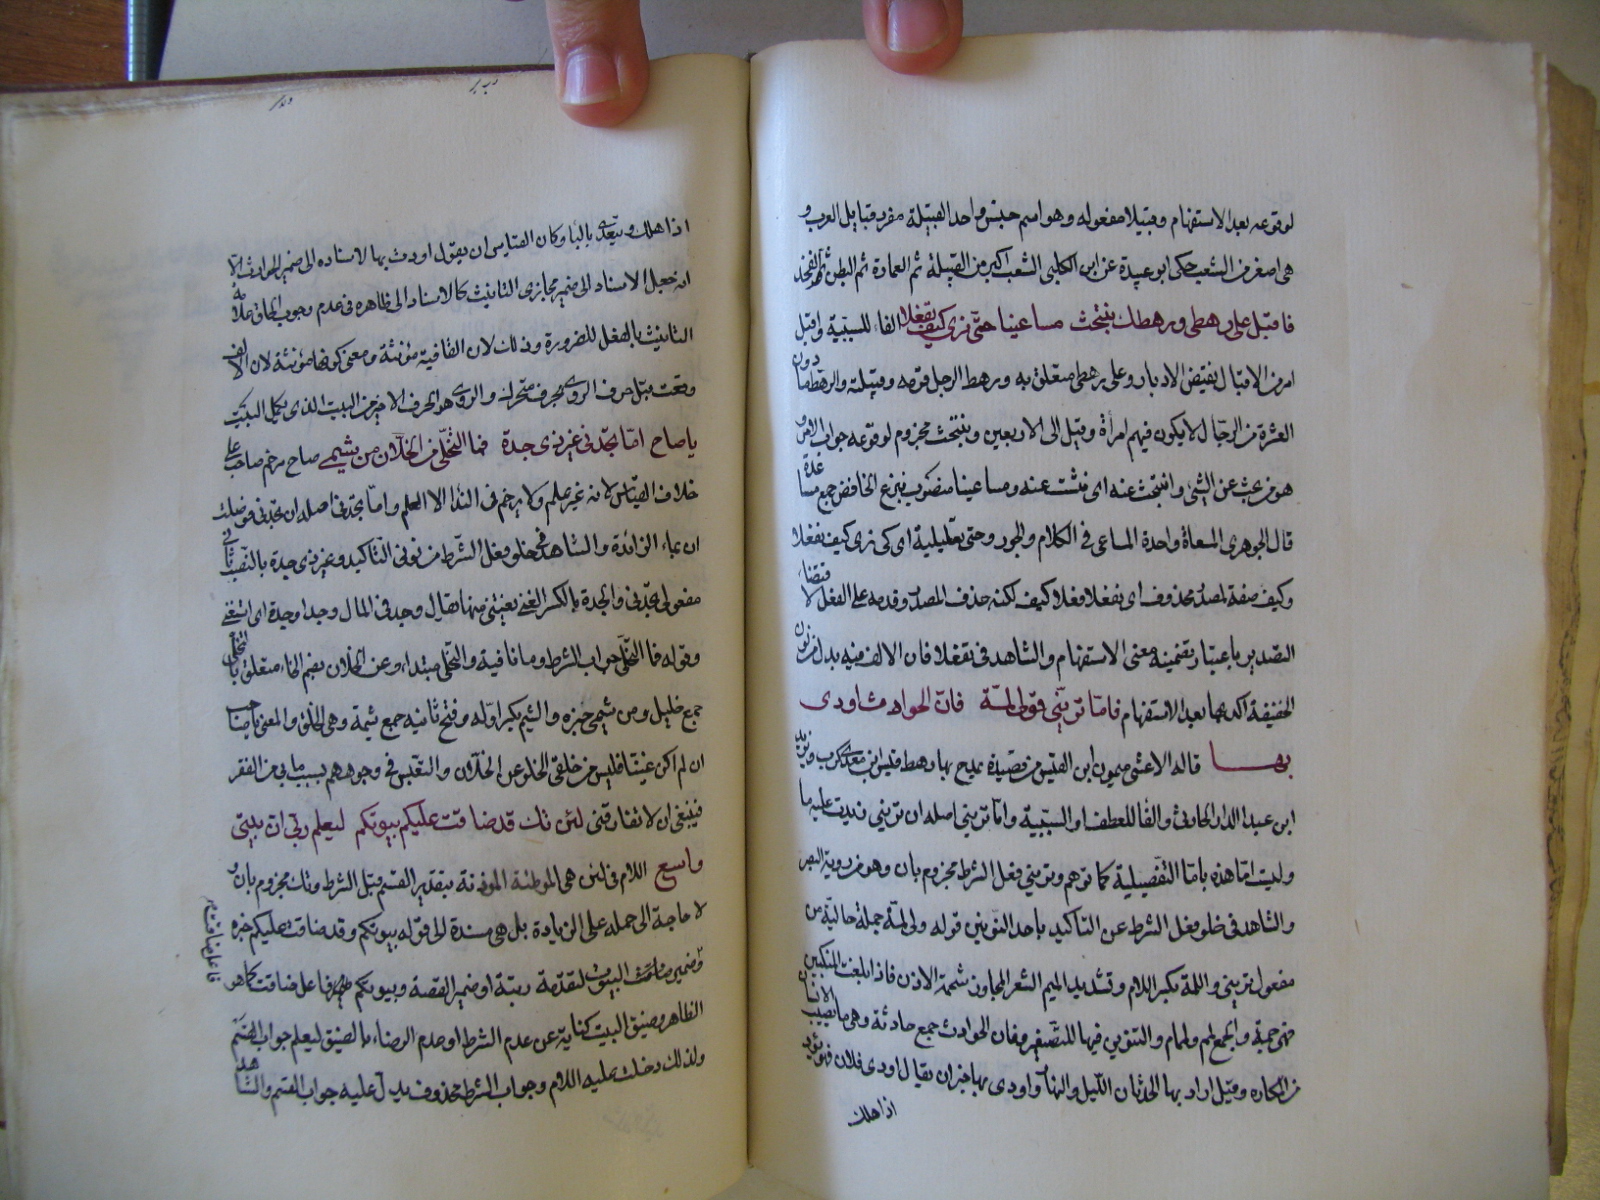 لوقوعه بعد الاستفهام وقبيلا مفعوله وهو اسم جنس واحد القبيلة مفرد قبايل العرب و
هى اصغر من الشعب حكى ابو عبيدة عن ابن الكلبى الشعب اكبر من القبيلة ثم العمارة ثم البطن ثم الفخذ
فاقبل على رهطى ورهطك نبتحث مساعينا حتى نرى كيف نفعلا الفاء للسببية واقبل
امر من الاقبال نقيض الادبار وعلى رهطى متعلق به ورهط الرجل قومه وقبيلته والرهط ما دون
العشرة من الرجال لا يكون فيهم امراة وقيل الى الاربعين ونبتحث مجزوم لوقوعه جواب الامر و
هو من بحث عن الشئ وابتحث عنه اى فتشت عنه ومساعينا منصوب بنزع الخافض جمع مسعاة
قال الجوهرى المسعاة واحدة المساعى فى الكلام والجود وحتى تعليلية اى كى نرى كيف نفعلا
وكيف صفة لمصدر محذوف اى نفعلا فعلا كيف لكنه حذف المصدر وقدمه على الفعل لاقتضاء
التصدير باعتبار تضمينه معنى الاستفهام والشاهد فى نفعلا فان الالف فيه بدل من نون
الخفيفة اكد بها بعد الاستفهام فاما ترينى ولى لمة فان الحوادث اودى
بها قاله الاعشى ميمون ابن القيس من قصيدة يمدح بها رهط قيس ابن معدى كرب ويزيد
ابن عبد الدار الحارثى والفا للعطف او السببية واما ترينى اصله ان ترينى زيدت عليه ما
وليت اما هذه باما التفصيلية كما توهم وترينى فعل الشرط مجزوم بان وهو من روية البصر
والشاهد فى خلو فعل الشرط عن التاكيد باحد النونين قوله ولى لمة جملة حالية من
مفعول ترينى واللمة بكسر اللام وتشديد الميم الشعر المجاوز شحمة الاذن فاذا بلغت المنكبين
فهى جمة والجمع لمم ولمام والتنوين فيها للتصغير وفان الحوادث جمع حادثة وهى ما يصيب الانسان
من المكاره وقيل اراد بها الحدثان الليل والنهار واودى بها خبر ان يقال اودى فلان فهو مود
اذا هلك
اذا هلك ويتعدى بالباء وكان القياس ان يقول اودت بها لاسناده الى ضمير الحوادث الا
انه جعل الاسناد الى ضمير مجازى التانيث كالاسناد الى ظاهره فى عدم وجوب الحاق علامة
التانيث بالفعل للضرورة وذلك لان القافية مؤنثة ومعنى كونها مؤنثة لان الالف
وقعت قبل حرف الروى بحرف متحركة والروى هو الحرف الاخير من البيت الذى يكمل البيت
يا صاح اما تجدنى غير ذى جدة فما التخلى من الخلان من شيمى صاح مرخم صاحب على
خلاف القياس لانه غير علم ولا يرخم فى الندا الا العلم واما تجدنى اصله ان تجدنى وصلت
ان بماء الزائدة والشاهد فى خلو فعل الشرط من نونى التاكيد وغير ذى جدة بالنصب ثانى
مفعولى تجدنى والجدة بالكسر الغنى يعنى منها يقال وجد فى المال وجدا وجدة اى استغنى
وقوله فما التخلى جواب الشرط وما نافية والتخلى مبتداء وعن الخلان بضم الخاء متعلق بالتخلى
جمع خليل ومن شيمى خبره والشيم بكسر اوله وفتح ثانيه جمع شيمة وهى الخلق والمعنى يا صاحب
ان لم اكن غنيا فليس من خلقى الخلو عن الخلان والتعبس فى وجوههم بسبب ما بى من الفقر
فينبغى ان لا تفارقنى لئن تك قد ضاقت عليكم بيوتكم ليعلم ربى ان بيتى
واسع اللام فى لئن هى الموطئة الموذنة بتقدير القسم قبل الشرط وتك مجزوم بان و
لا حاجة الى حمله على الزيادة بل هى مسندة الى قوله بيوتكم وقد ضاقت عليكم خبره
وضمير ضاقت البيوت لتقدمه رتبة او ضمير القصة وبيوتكم فاعل ضاقت كما هو
الظاهر وضيق البيت كناية عن عدم الشرط او عدم الرضاء بالضيق ليعلم جواب القسم
ولذلك دخلت عليه اللام وجواب الشرط محذوف يدل عليه جواب القسم والشاهد